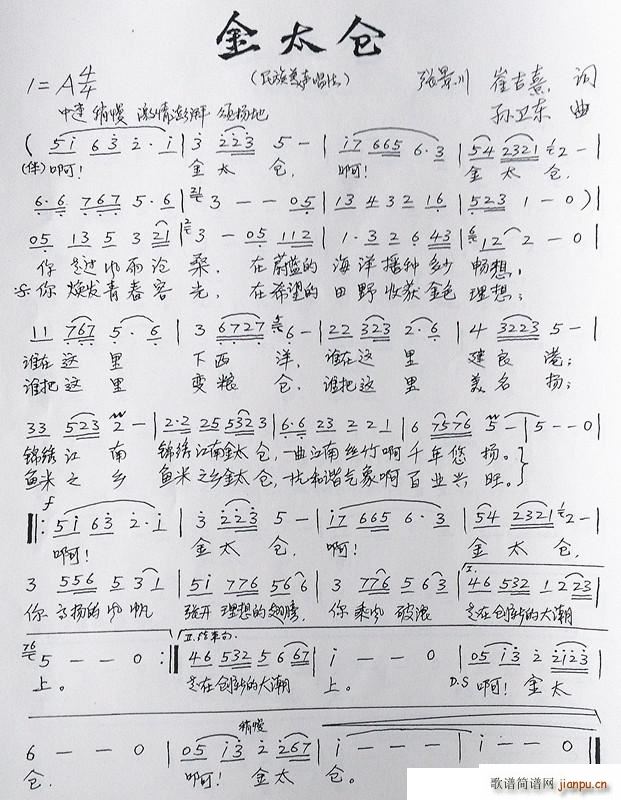 金太仓
(民族美声唱法)
1=A 4/4
张景川 崔吉熹 词
孙卫东 曲
中速 稍慢 激情澎湃 颂扬地
( 5i 63 2·i | 3 223 5 - | i7 665 6·3 | 54 2321 2 - |
(伴)啊! 金太仓, 啊! 金太仓,
6·6 767 5·6 | 3 - - 05 | 13 432 16 | 523 1 - 0 )
05 135 3 21 | 3 - 05 112 | 1·3 26 43 | 12 2 - 0 |
你走过风雨沧桑, 在蔚蓝的海洋播种多少畅想,
你焕发青春容光, 在希望的田野收获金色理想;
11 767 5·6 | 3 6727 6 - | 22 323 2·6 | 4 3223 5 - |
谁在这里下西洋, 谁在这里建良港;
谁把这里变粮仓, 谁把这里美名扬;
33 523 2 - | 2·2 25 532 3 | 6·6 23 2 2 1 | 6 7576 5 - | 5 - - 0 |
锦绣江南 锦绣江南金太仓, 一曲江南丝竹啊千年悠扬。
鱼米之乡 鱼米之乡金太仓, 一抗和谐气象啊百业兴旺。
f
5i 63 2·i | 3 223 5 - | i7 665 6·3 | 54 2321 2 - |
啊! 金太仓, 啊! 金太仓,
I.
3 556 5 31 | 5i 776 56 6 | 3 776 5 63 | 46 532 1 223 |
你高扬的风帆 张开理想的翅膀, 你乘风破浪 走在创新的大潮
II.结束句
5 - - 0 :| 46 532 56 67 | i - - 0 | 05 i3 2 2123 |
上。 走在创新的大潮上。 D.S 啊! 金太
稍慢
6 - - 0 | 05 i3 2 267 | i - - - | i - - 0 |
仓, 啊! 金太仓。
歌谱简谱网
jianpu.cn